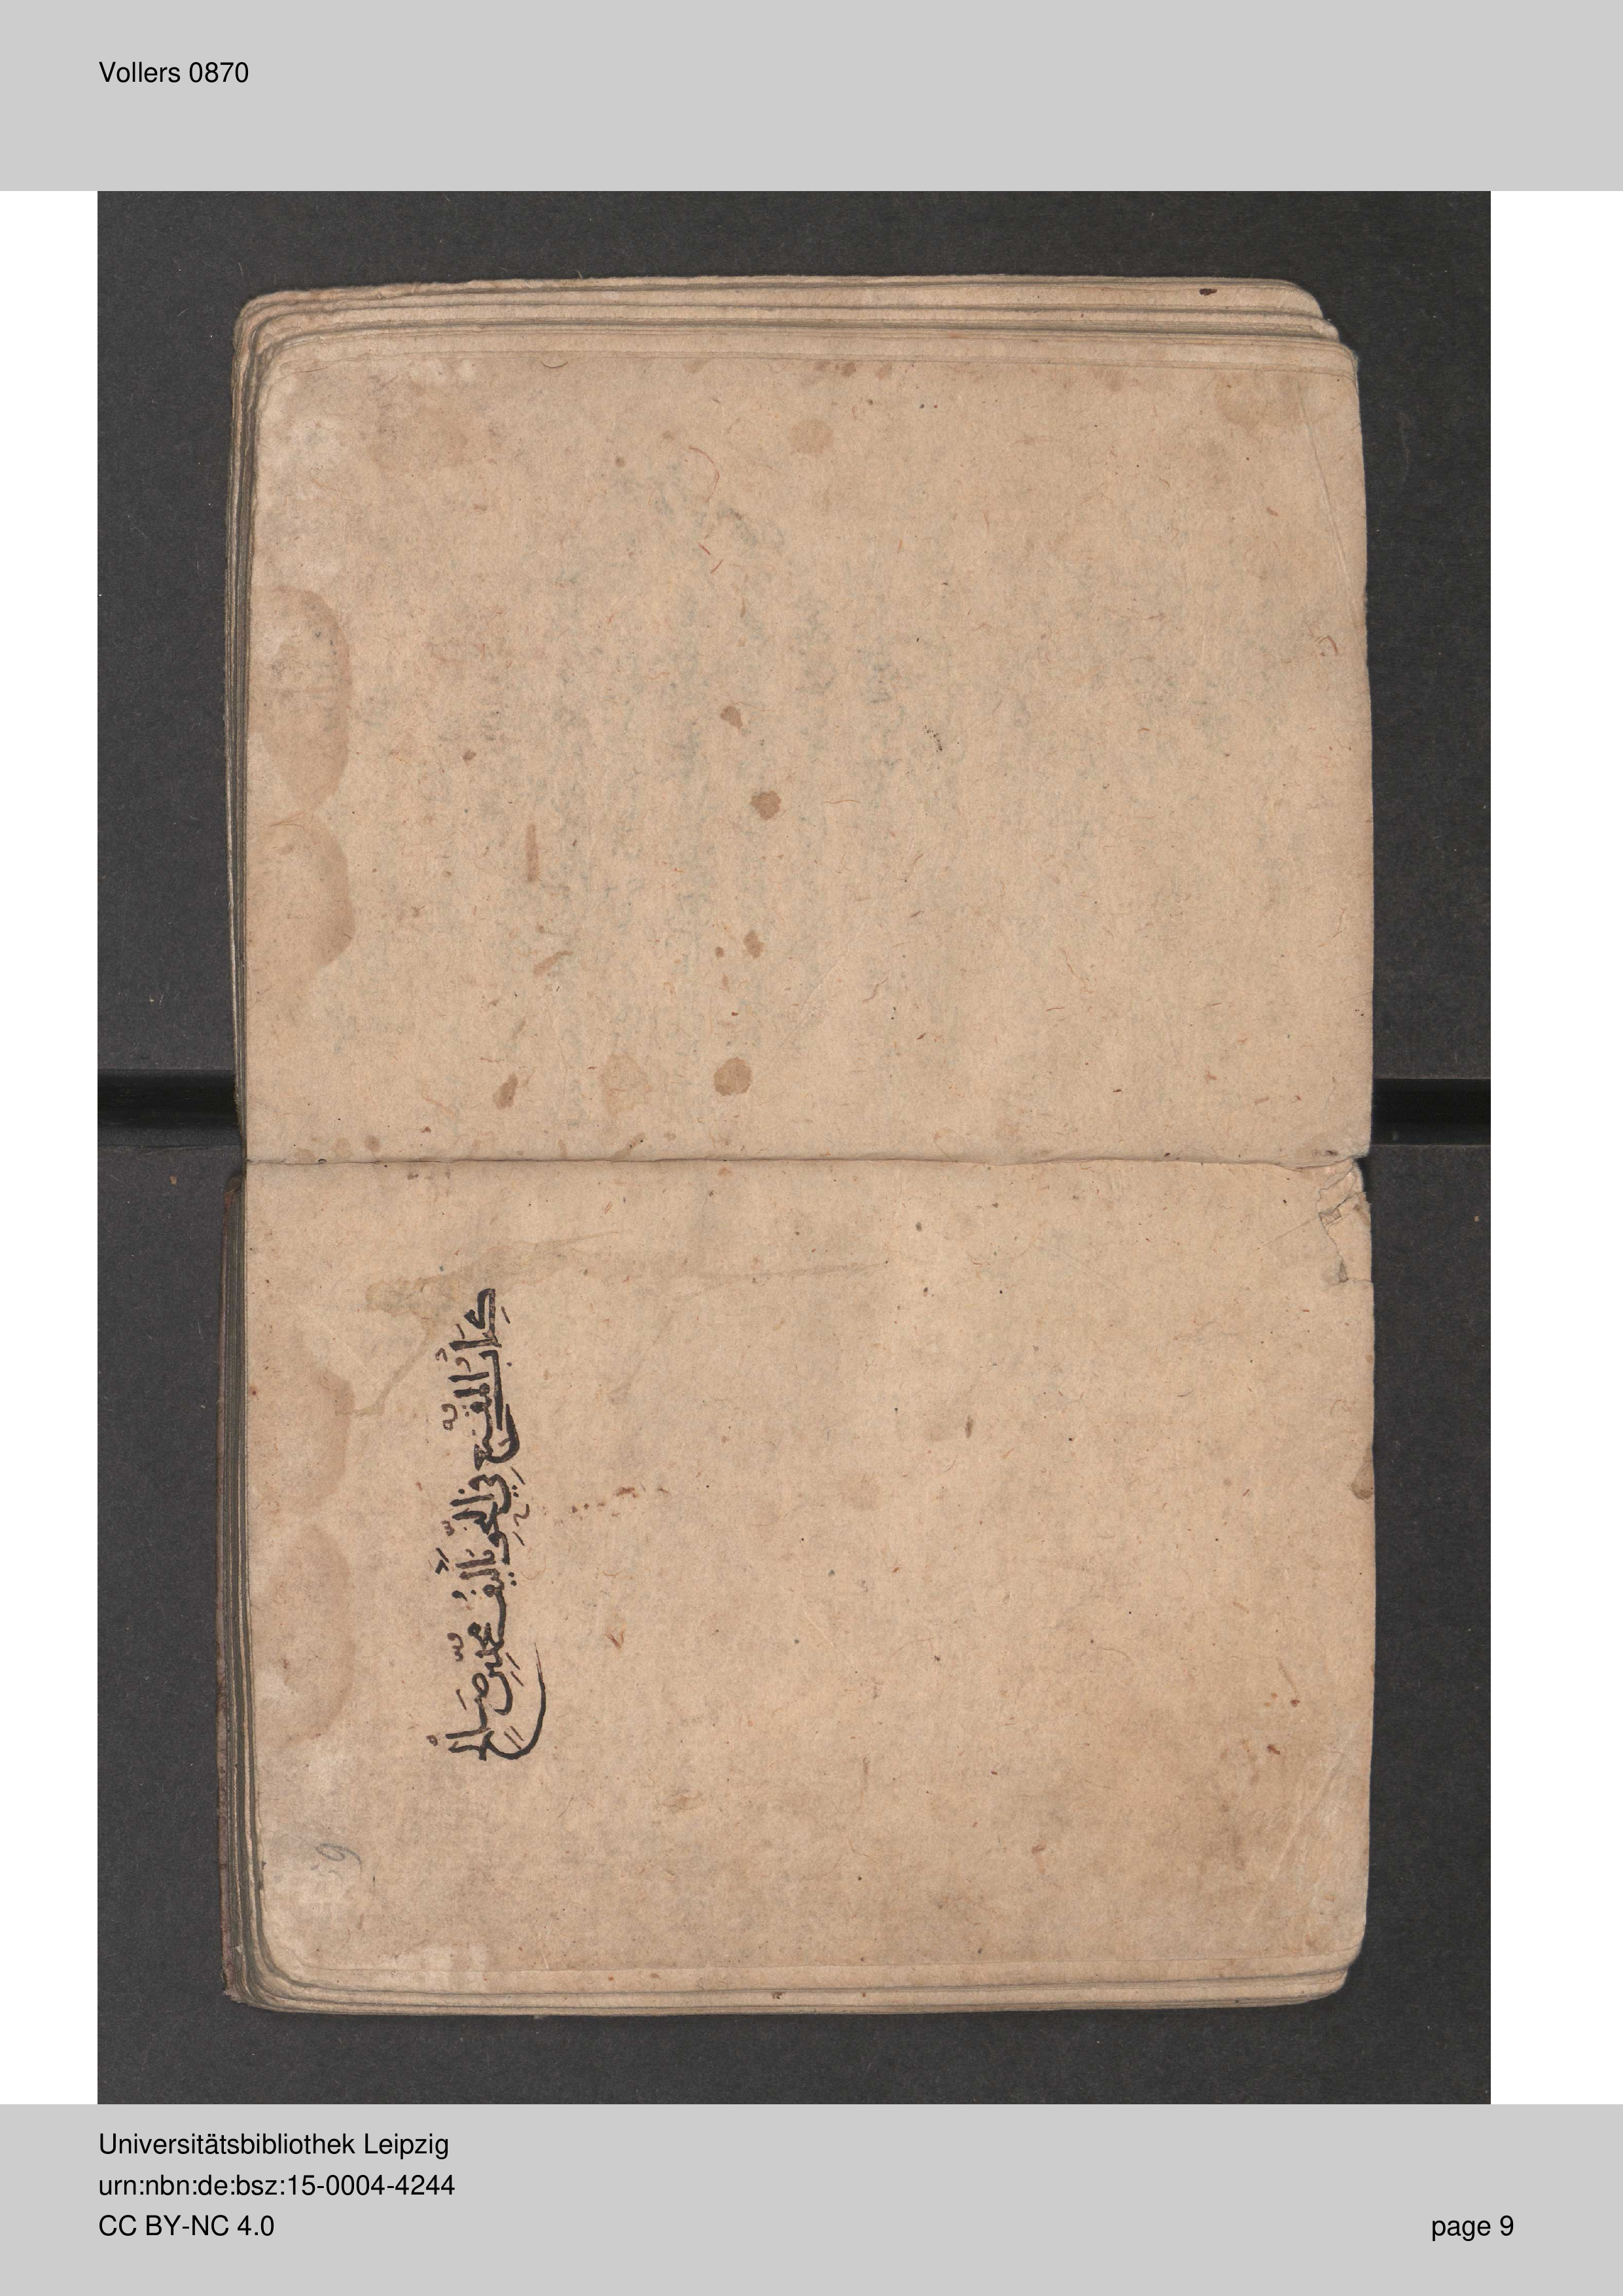 Vollers 0870
كِتَابُ المُقْنِع فِي النَّحْوِ تَأليفُ محمد بن صَالح
6
Universitätsbibliothek Leipzig
urn:nbn:de:bsz:15-0004-4244
CC BY-NC 4.0
page 9